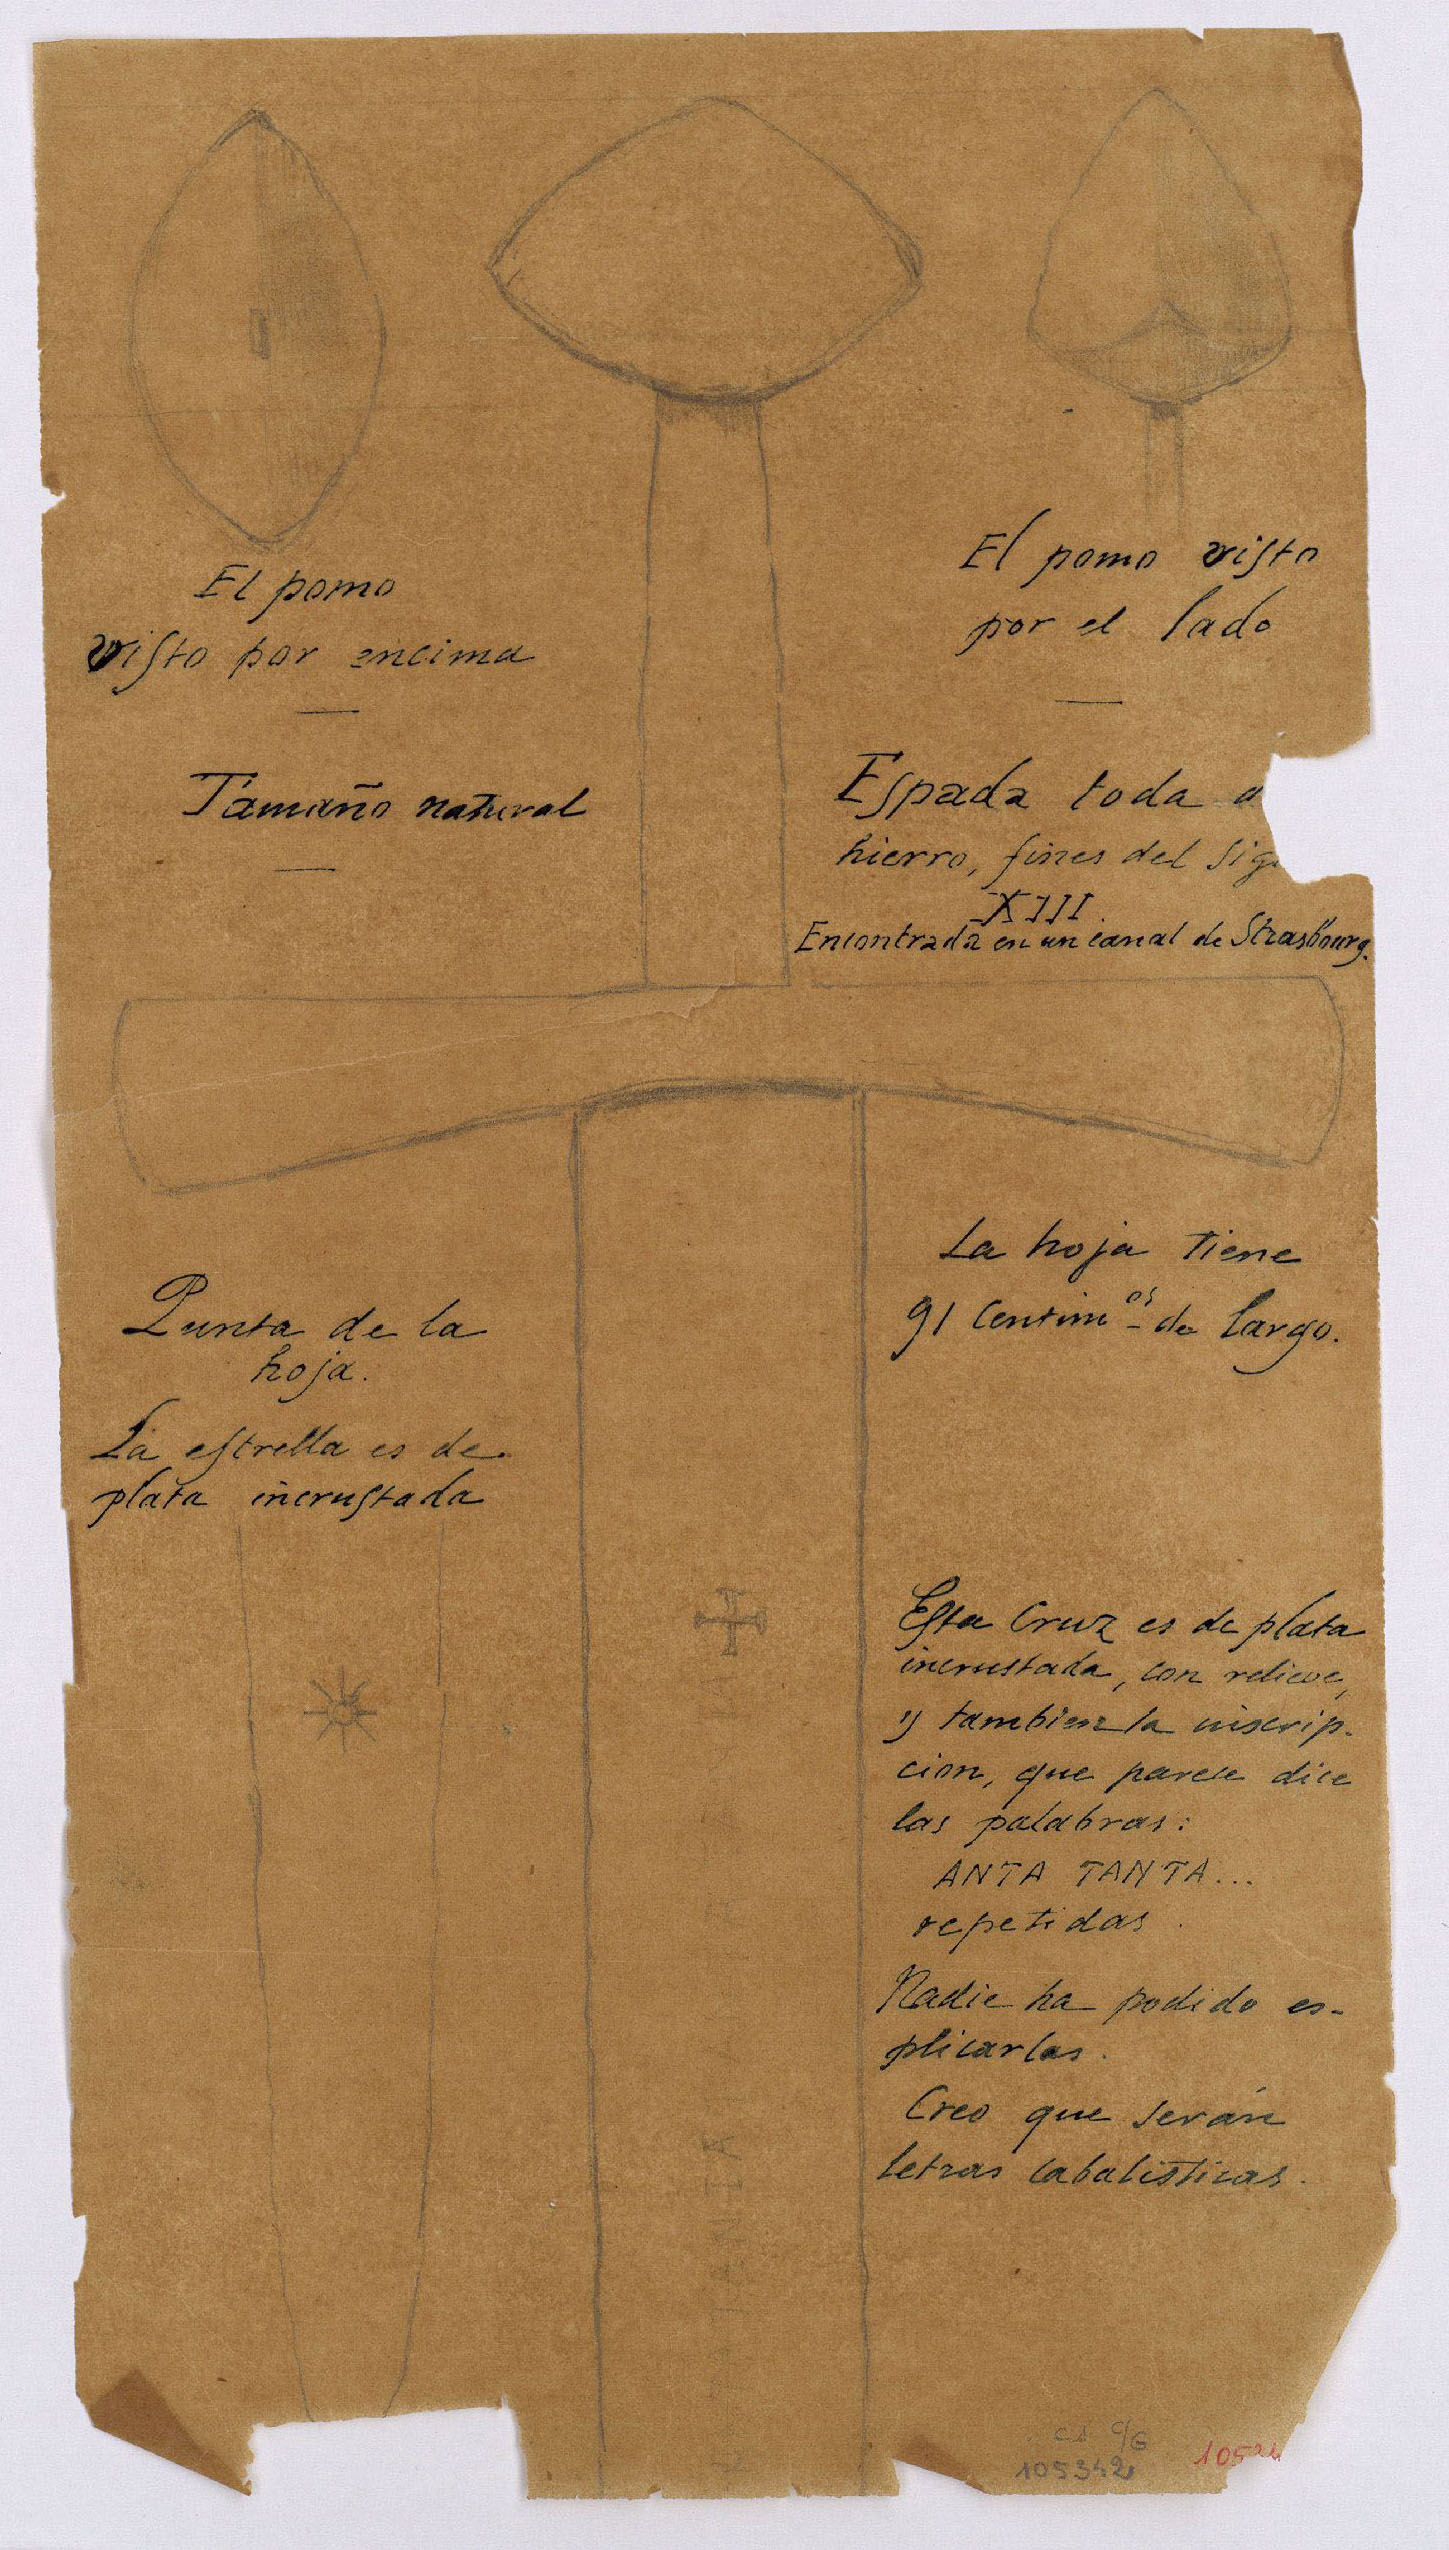 El pomo
visto por encima
El pomo visto
por el lado
Tamaño natural
Espada toda
hierro, fines del sig
XIII.
Encontrada en un canal de Strasbourg.
La hoja tiene
91 Centimos de largo.
Punta de la
hoja.
La estrella es de
plata incrustada
Esta Cruz es de plata
incrustada, con relieve,
y tambien la inscrip-
cion, que parece dice
las palabras:
ANTA TANTA...
repetidas.
Nadie ha podido es-
plicarlas.
Creo que serán
letras cabalisticas.
105342